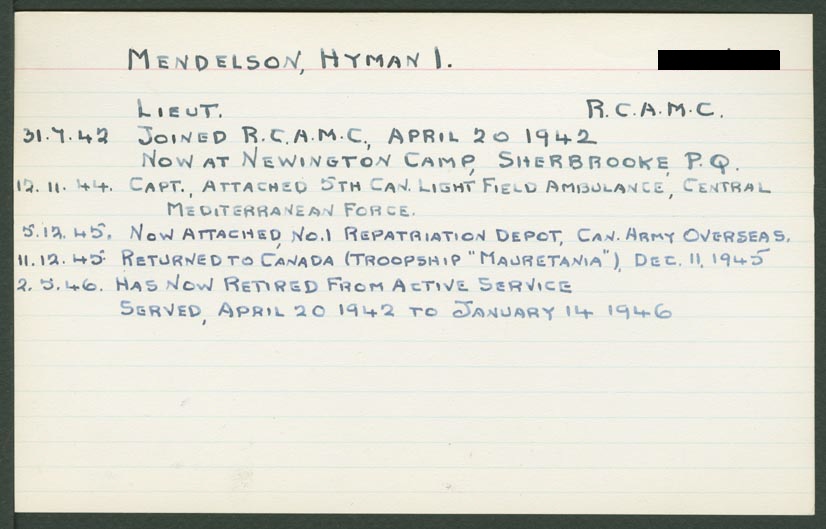 MENDELSON, HYMAN I.
LIEUT. R.C.A.M.C.
31.7.42 JOINED R.C.A.M.C., APRIL 20 1942
NOW AT NEWINGTON CAMP, SHERBROOKE, P.Q.
12.11.44. CAPT., ATTACHED 5TH CAN. LIGHT FIELD AMBULANCE, CENTRAL
MEDITERRANEAN FORCE.
5.12.45. NOW ATTACHED, NO.1 REPATRIATION DEPOT, CAN. ARMY OVERSEAS.
11.12.45 RETURNED TO CANADA (TROOPSHIP "MAURETANIA"), DEC. 11, 1945
2.5.46. HAS NOW RETIRED FROM ACTIVE SERVICE
SERVED, APRIL 20 1942 TO JANUARY 14 1946